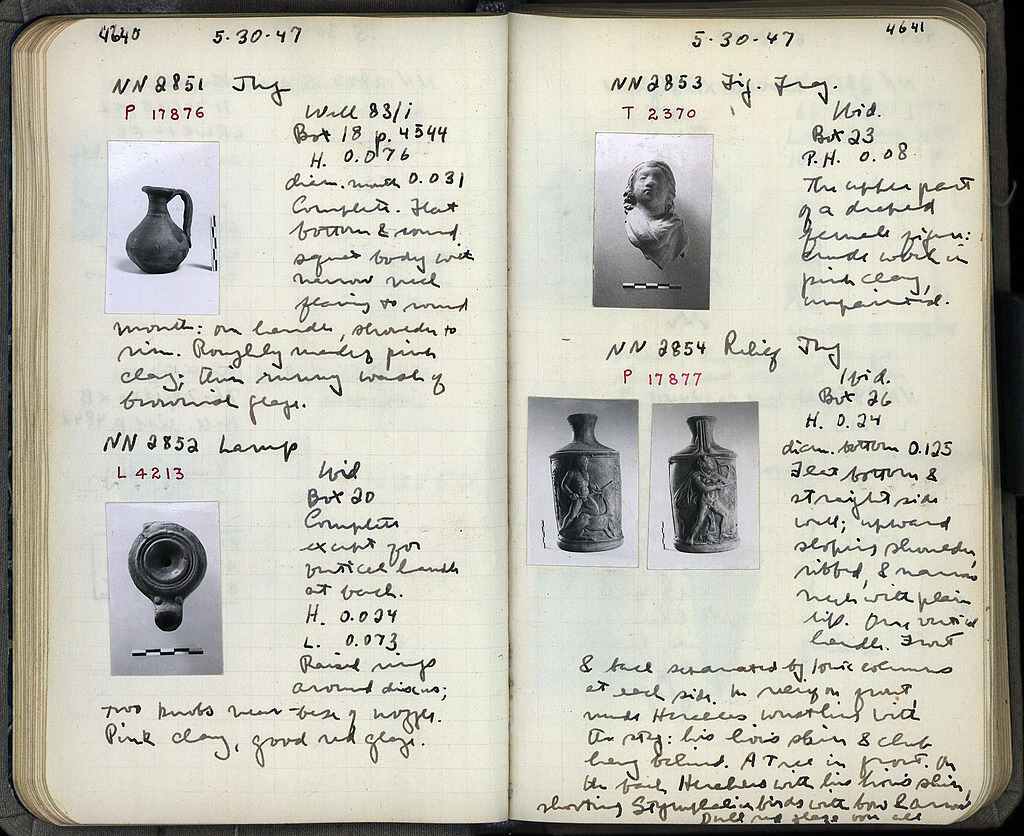 4640
5·30·47
NN 2851 Jug
P 17876
Well 83/i
Box 18 p. 4544
H. 0.076
diam. mouth 0.031
Complete. Flat
bottom & round
squat body with
narrow neck
flaring to round
mouth: one handle, shoulder to
rim. Roughly made of pink
clay; thin runny wash of
brownish glaze.
NN 2852 Lamp
L 4213
Ibid
Box 20
Complete
except for
vertical handle
at back.
H. 0.024
L. 0.073
Raised rings
around discus;
two knobs near base of nozzle.
Pink clay, good red glaze.
4641
5·30·47
NN 2853 Fig. Frag.
T 2370
Ibid.
Box 23
P.H. 0.08
The upper part
of a draped
female figure:
crude work in
pink clay,
unpainted.
NN 2854 Relief Jug
P 17877
Ibid.
Box 26
H. 0.24
diam. bottom 0.125
Flat bottom &
straight side
wall; upward
sloping shoulder,
ribbed, & narrow
neck with plain
lip. One vertical
handle. Front
& back separated by Ionic columns
at each side. In relief on front,
nude Herakles wrestling with
the stag: his lion's skin & club
hang behind. A tree in front. On
the back Herakles with his lion's skin,
shooting Stymphalian birds with bow & arrow
Dull red glaze over all